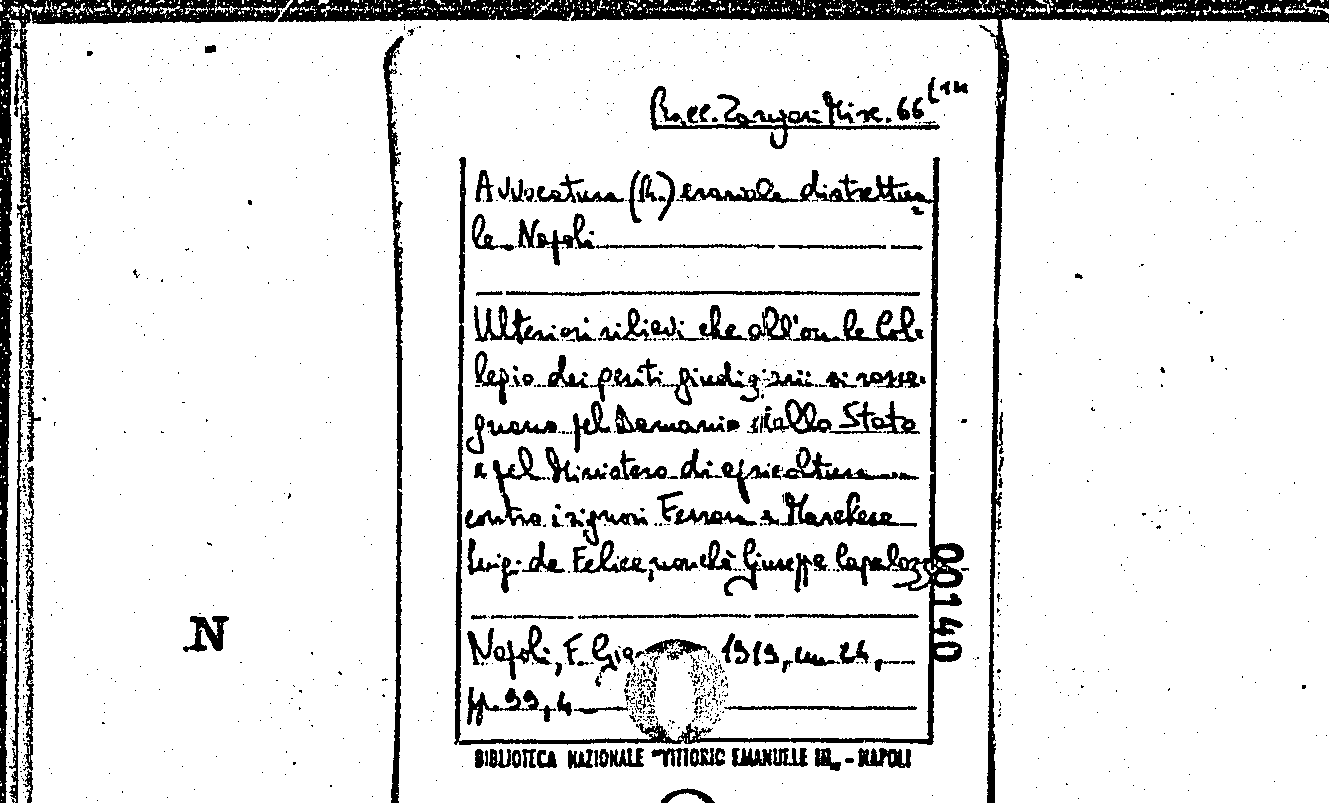 Racc. Zangari Misc. 66
Avvocatura (R.) erariale distrettua
le. Napoli
Ulteriori rilievi che all'on.le Col-
legio dei periti giudiziarii si rasse-
gnano pel Demanio dello Stato
e pel Ministero di agricoltura
contro i signori Ferrara e Marchese
Luigi de Felice, nonchè Giuseppe Capalozza
Napoli, F. 1919, cm. 24,
pp. 99, 4
00140
N
BIBLIOTECA NAZIONALE "VITTORIO EMANUELE III" - NAPOLI